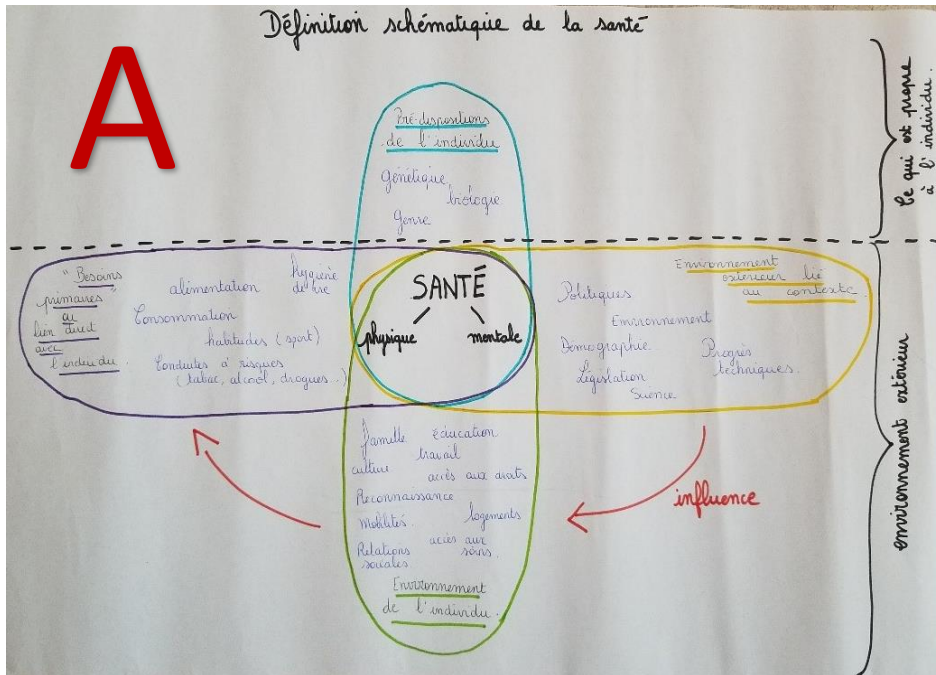 Définition schématique de la santé
A
Ce qui est propre
à l'individu.
Pré-dispositions
de l'individu
Génétique
biologie
Genre
"Besoins
primaires"
au
lien direct
avec
l'individu.
alimentation
hygiène
de vie
Consommation
habitudes (sport)
Conduites à risques
(tabac, alcool, drogues...)
SANTÉ
physique
mentale
Environnement
extérieur lié
au contexte.
Politiques
Environnement
Démographie
Progrès
techniques.
Législation
Science
environnement extérieur
famille
éducation
travail
culture
accès aux droits
Reconnaissance
Mobilités
logements
accès aux
soins.
Relations
sociales
Environnement
de l'individu.
influence